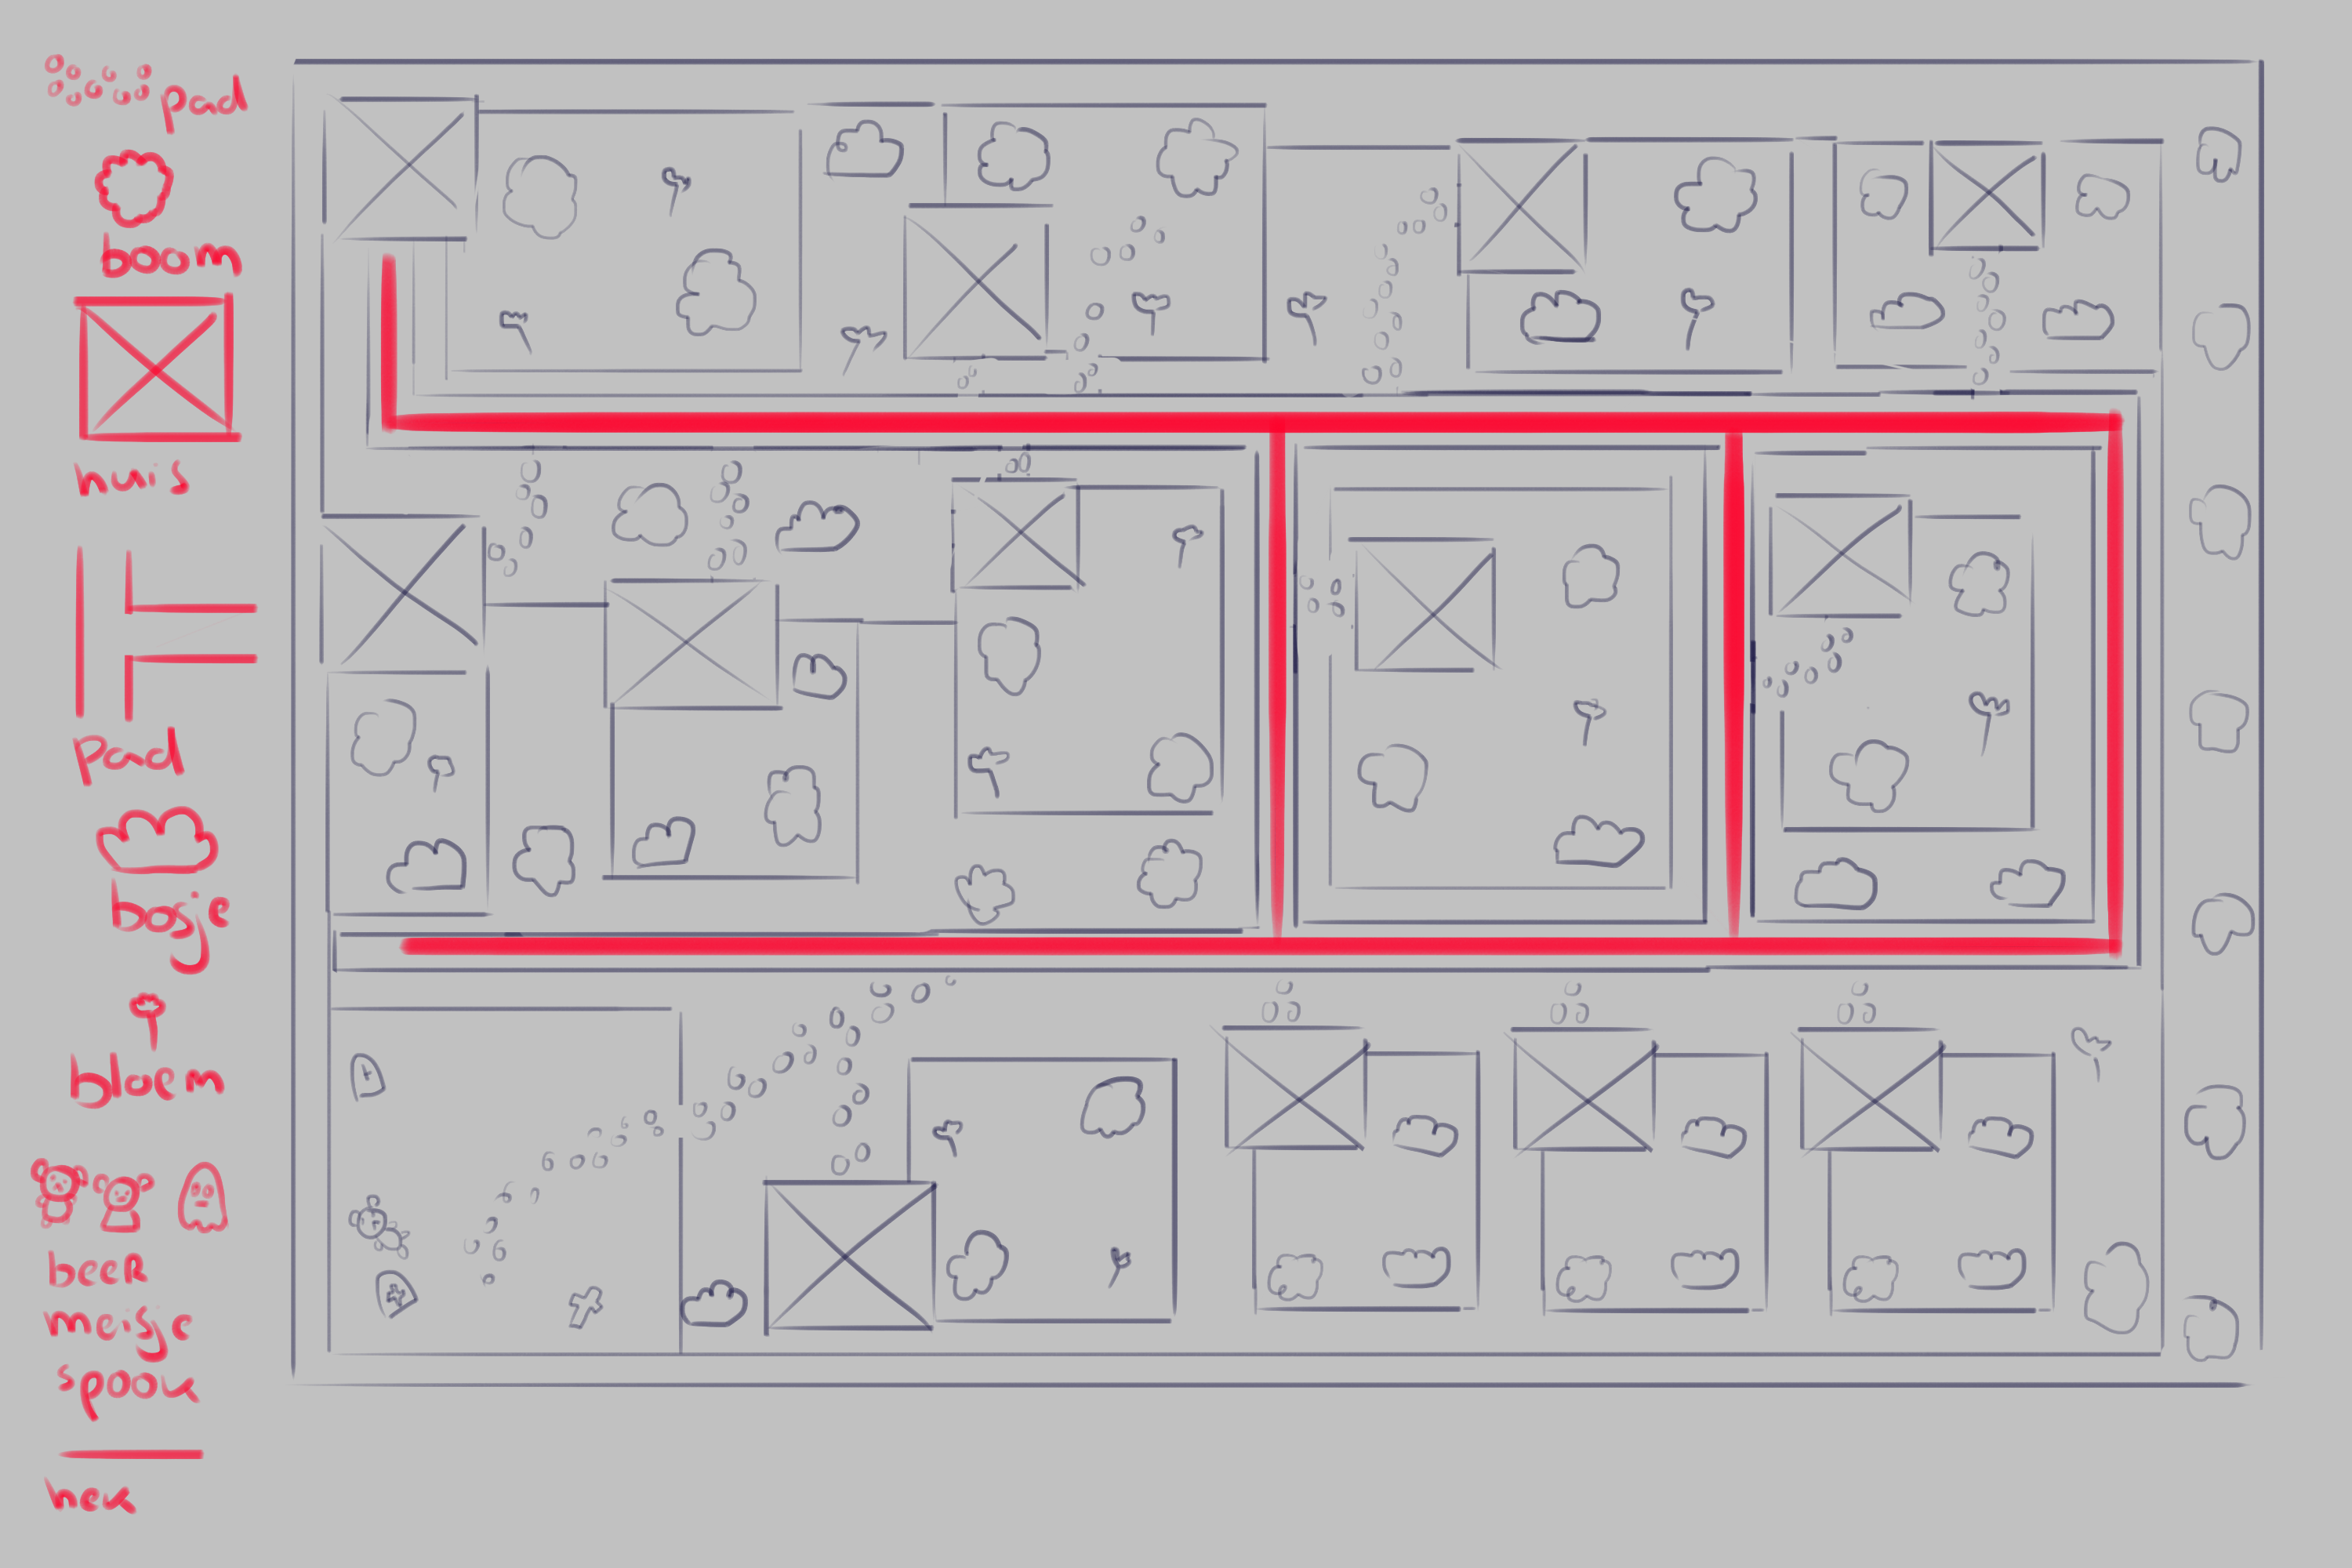 pad
boom
huis
pad
bosje
bloem
beer
meisje
spook
hek